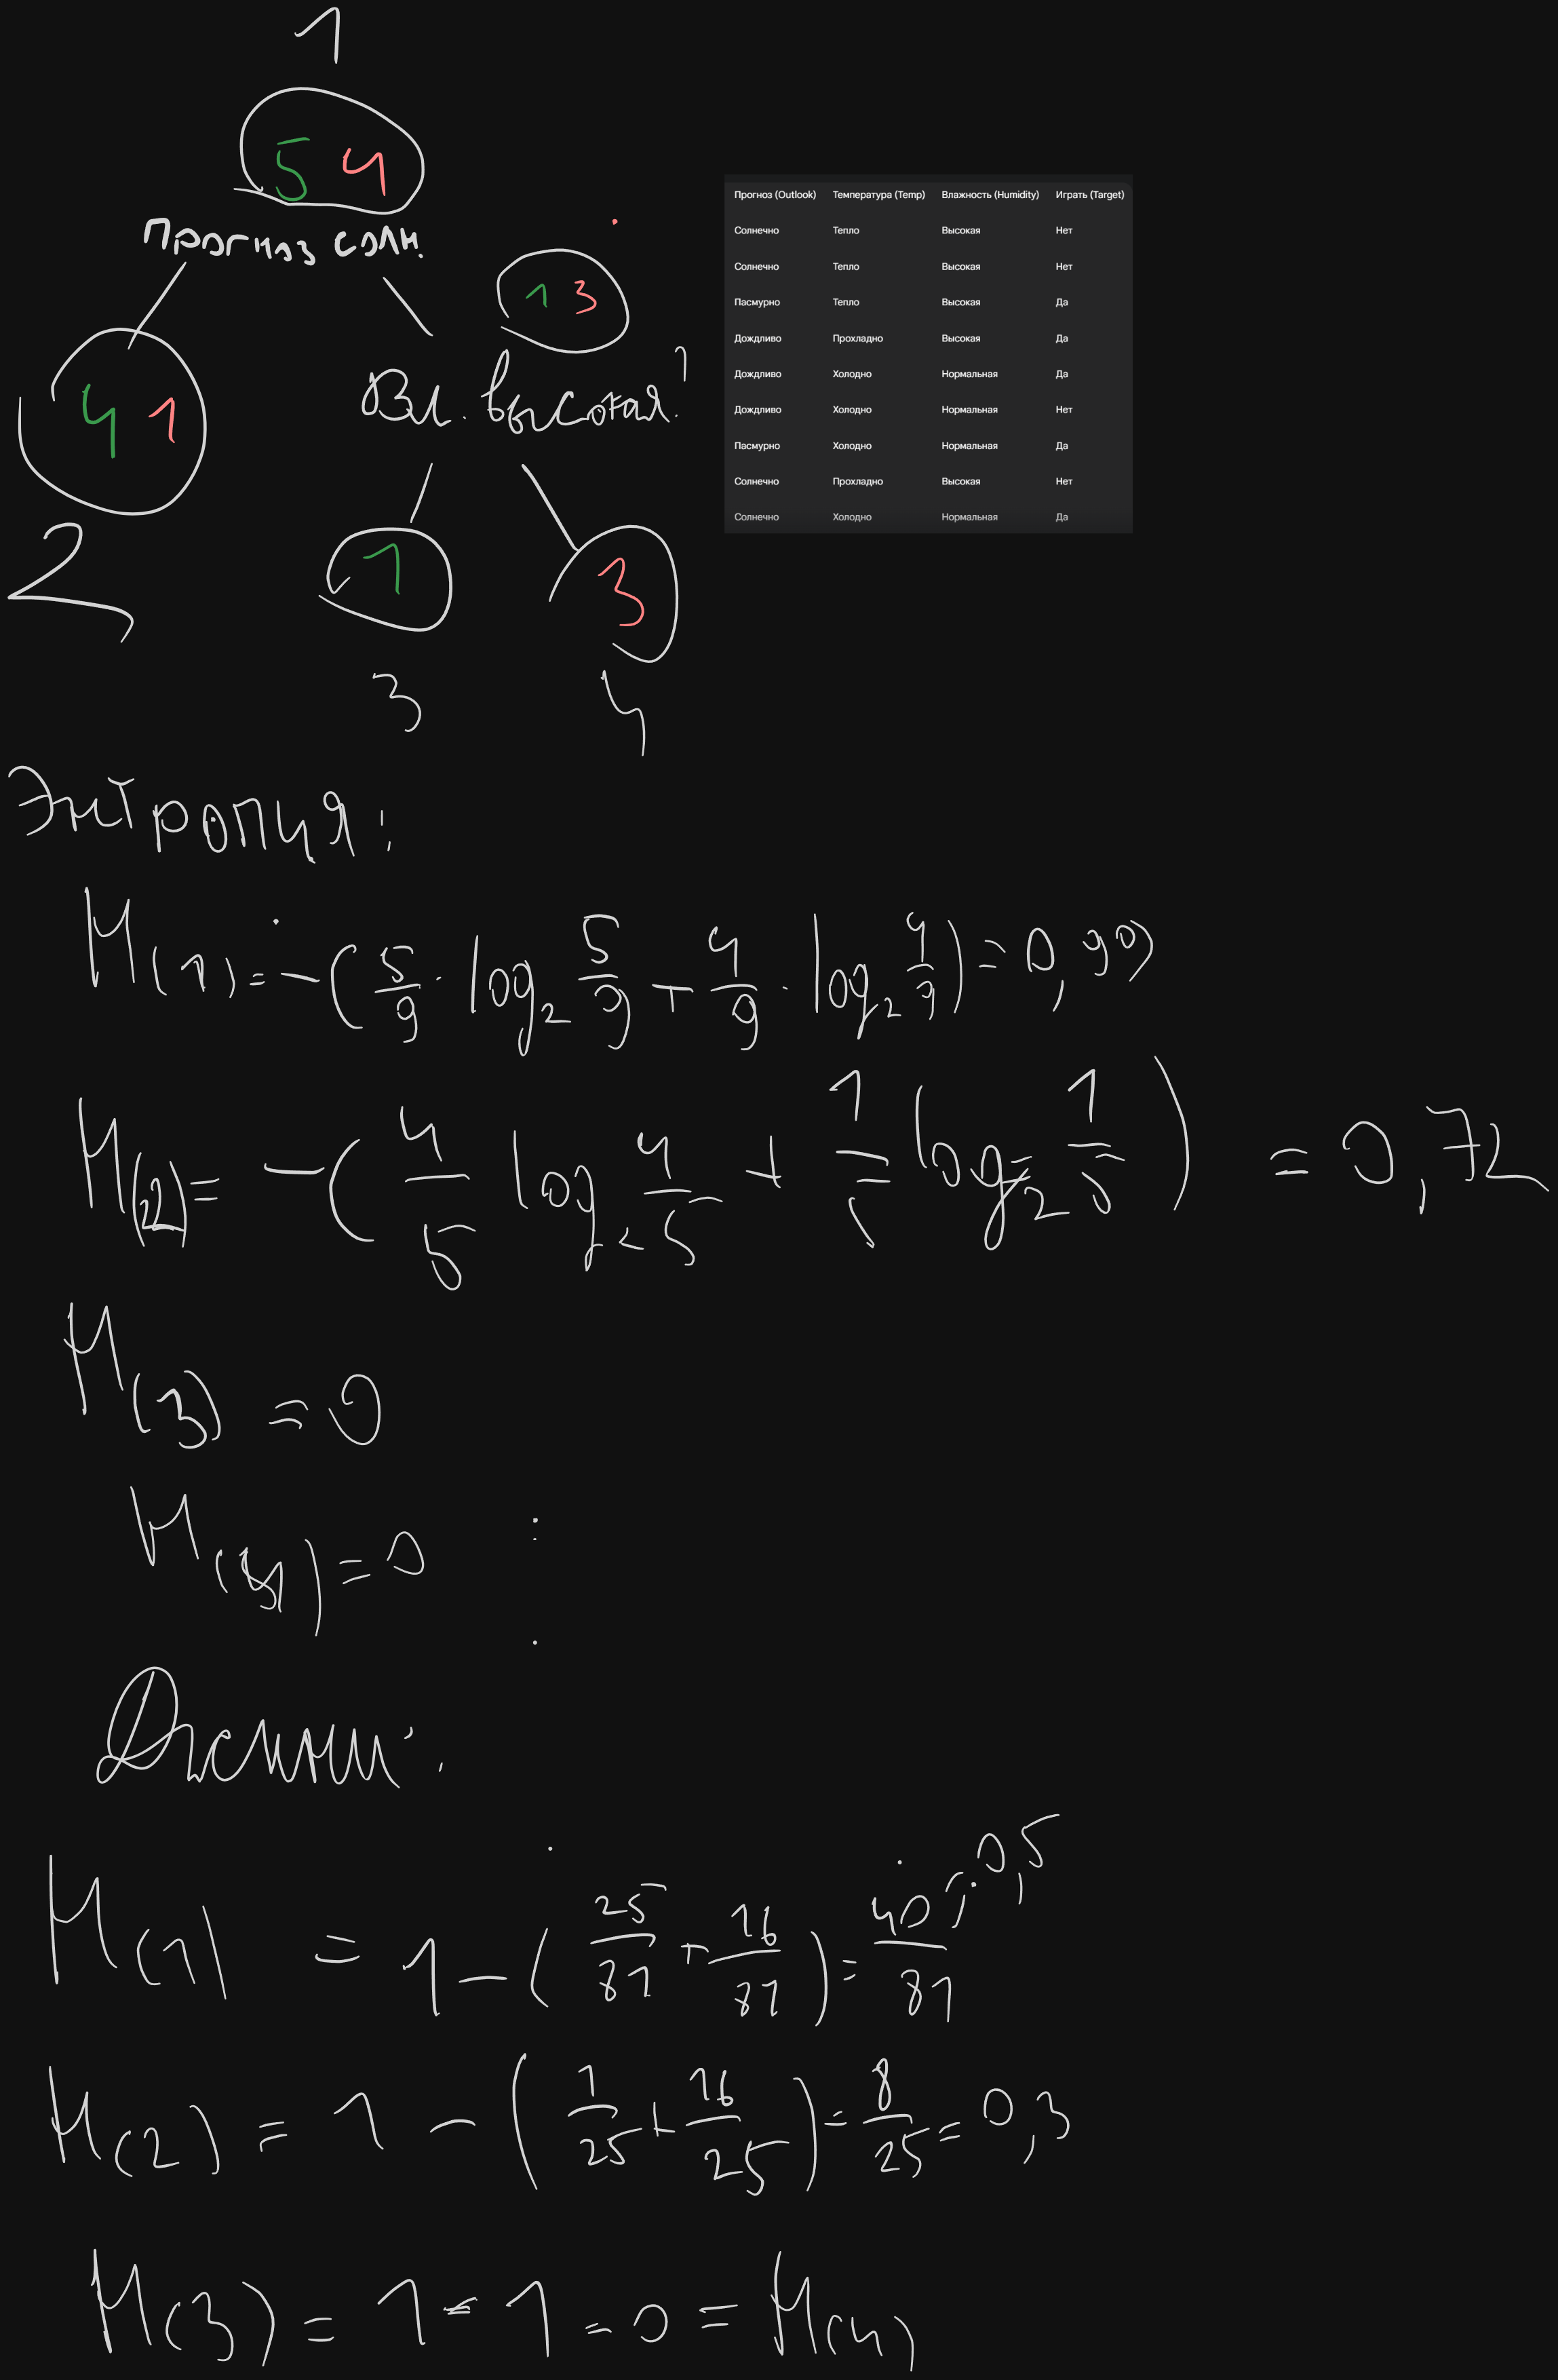 1
5 4
Прогноз солн.
1 3
Вл. высокая?
4 1
2
1
3
3
4
Прогноз (Outlook) Температура (Temp) Влажность (Humidity) Играть (Target)
Солнечно Тепло Высокая Нет
Солнечно Тепло Высокая Нет
Пасмурно Тепло Высокая Да
Дождливо Прохладно Высокая Да
Дождливо Холодно Нормальная Да
Дождливо Холодно Нормальная Нет
Пасмурно Холодно Нормальная Да
Солнечно Прохладно Высокая Нет
Солнечно Холодно Нормальная Да
Энтропия:
H(1) = -(5/9 · log₂ 5/9 + 4/9 · log₂ 4/9) = 0,99
H(2) = -(4/5 log₂ 4/5 + 1/5 log₂ 1/5) = 0,72
H(3) = 0
H(4) = 0
Джини:
H(1) = 1 - (25/81 + 16/81) = 40/81 = 0,5
H(2) = 1 - (1/25 + 16/25) = 8/25 = 0,3
H(3) = 1 - 1 = 0 = H(4)